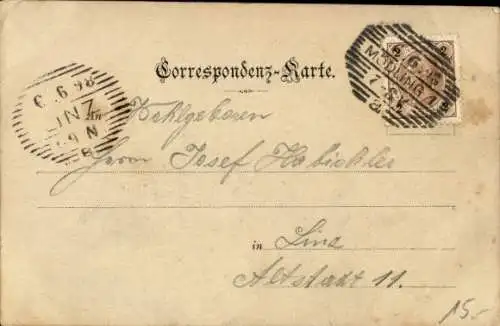 Correspondenz-Karte.
6.6.98
LINZ
6-9 N
8
6.6.98
MÖDLING 1
An
Wohlgeboren
Herrn Josef
in Linz
Altstadt 11.
15.-